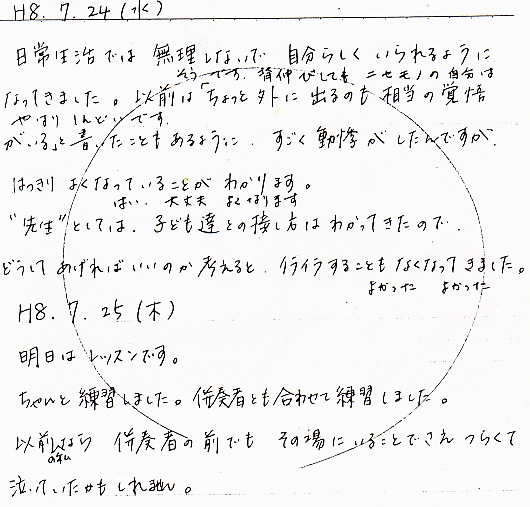 H8. 7. 24 (水)
日常生活では 無理しないで 自分らしく いられるように
そうです。背伸びしても ニセモノの自分は
なってきました。以前は「ちょっと外に 出るのも 相当の覚悟
やはり しんどいです
がいる」と書いたこともあるように、すごく動悸がしたんですが、
はっきり よくなっていることが わかります。
はい、大丈夫 よくなります
"先生"としては、子ども達との接し方はわかってきたので、
どうして あげればいいのか 考えると、イライラすることも なくなって きました。
よかった よかった
H8. 7. 25 (木)
明日は レッスンです。
ちゃんと 練習しました。伴奏者とも合わせて練習しました。
以前なら 伴奏者の前でも その場に いることでさえ つらくて
の私
泣いていたかもしれません。